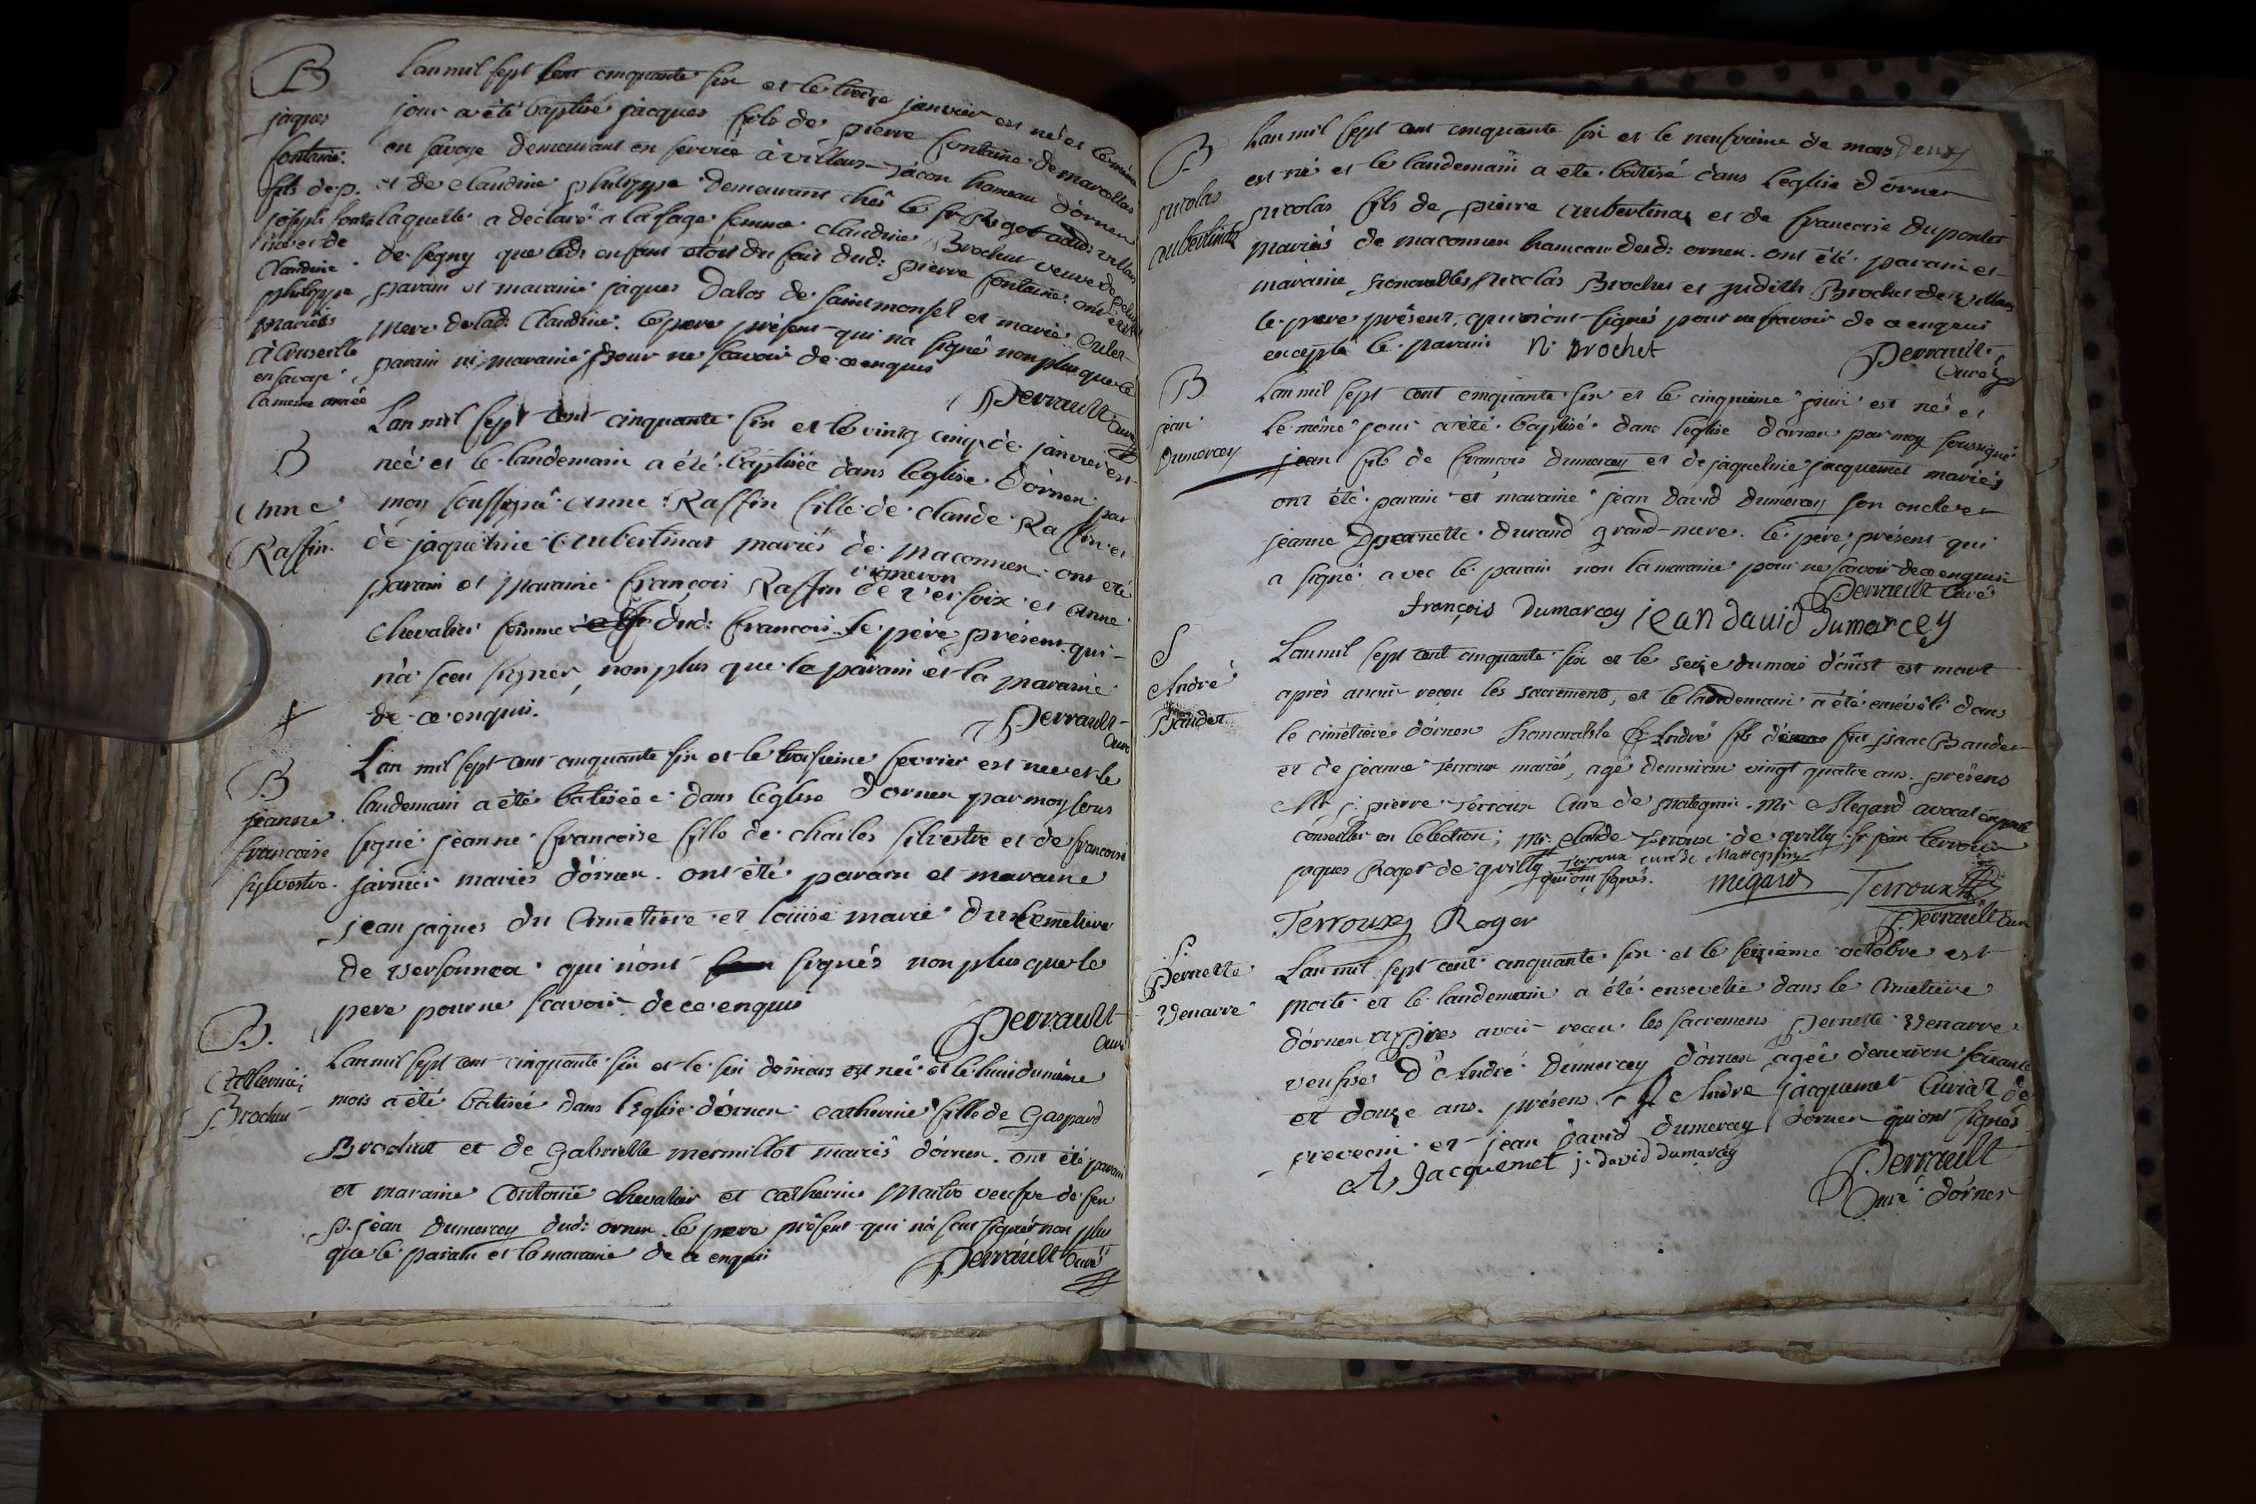 B
jaques
fontaine
fils de p.
joseph fontaine
et de
Claudine
philippe
mariés
à
en savoye
la meme année
Lan mil sept cent cinquante six et le treize janvier est né et le même
jour a été baptisé jacques fils de pierre fontaine de
en savoye demeurant en service à villars tacon hameau dornex
et de claudine philippe demeurant chés le sr Rigot aud: villars
laquelle a déclaré a la sage femme claudine Brochut veuve de
de segny que led: enfant etoit du fait dud: pierre fontaine ont été
parain et maraine jaques Dalos de saint monset et marie
mere de lad: Claudine. le pere présent qui na signé non plus que le
parain ni maraine pour ne scavoir de ce enquis
Perrault Curé
B
Anne
Raffin
Lan mil sept cent cinquante six et le vintg cinq de janvier est
née et le landemain a été baptisée dans leglise dornex par
moy soussigné Anne Raffin fille de claude Raffin et
de jaqueline Aubertinat mariés de maconnex ont eté
parain et maraine françois Raffin vigneron de versoix et Anne
Chevalier femme dud: francois le père présent qui
nà sceu signer, non plus que le parain et la maraine
de ce enquis.
Perrault
Curé
B
jeanne
francoise
sylvestre
Lan mil sept cent cinquante six et le troisieme fevrier est nee et le
landemain a été batiseé dans leglise dornex par moy sous
signé jeanne francoise fille de charles silvestre et de francoise
jarnier mariés dornex. ont été parain et maraine
jean jaques du Cimetiere et loüise marie du Cemetiere
de versonnex qui nont signés non plus que le
pere pour ne scavoir de ce enquis
Perrault
Curé
B.
Catherine
Brochut
Lan mil sept cent cinquante six et le six de mars est neé et le huit du même
mois a été batisée dans leglise dornex catherine fille de Gaspard
Brochut et de Gabrielle mermillot mariés dornex. ont été parain
et maraine Antoine chevalier et catherine Maitre veufve de feu
Sr. jean dumarcey dud: ornex le pere présent qui nà sceu signer non plus
que le parain et la maraine de ce enquis
Perrault Curé
B
nicolas
aubertinat
Lan mil sept cent cinquante six et le neufvieme de mars
est né et le landemain a eté batisé dans leglise dornex
nicolas fils de pierre Aubertinat et de francoise Dupontet
mariés de maconnex hameau dud: ornex. ont été parain et
maraine honorables nicolas Brochet et judith Brochet de villars
le pere présent, qui n'ont signés pour ne scavoir de ce enquis
excepté le parain N. Brochet
Perrault
Curé
B
jean
Dumarcey
Lan mil sept cent cinquante six et le cinquieme juin est né et
le même jour a été baptisé dans leglise dornex par moy soussigné
jean fils de françois dumarcey et de jaqueline jacquemet mariés
ont été parain et maraine jean david dumarcey son oncle et
jeanne pernette durand grand-mere. le père présent qui
a signé avec le parain non la maraine pour ne scavoir de ce enquis
Perrault Curé
françois Dumarcey jean david Dumarcey
S
André
Baudet
Lan mil sept cent cinquante six et le seize du mois d'aûst est mort
après avoir reçeu les sacrements, et le landemain a été enseveli dans
le cimetiere dornex honorable André fils de feu jsaac Baudet
et de jeanne Terroux mariés, agé denviron vingt quatre ans. présens
Mr j: pierre Terroux Curé de mategnin. Mr Megard avocat
conseiller en lelection; Mr. claude Terroux de grilly. Sr jean terroux
jaques Roger de grilly qui ont signés.
Terroux curé de Mattegnin
Megard Terroux
Terroux Roger
Perrault Curé
S.
Pernette
Venarre
Lan mil sept cent cinquante six et le seizieme octobre est
morte et le landemain a été ensevelie dans le Cimetiere
dornex apprés avoir receu les sacremens pernette Venarre
veufve d'André dumarcey dornex agée denviron soixante
et douze ans. présens André jacquemet Curial de
prevecin et jean david dumarcey dornex qui ont signés
A. Jacquemet j: david dumarcey
Perrault
Curé dornex